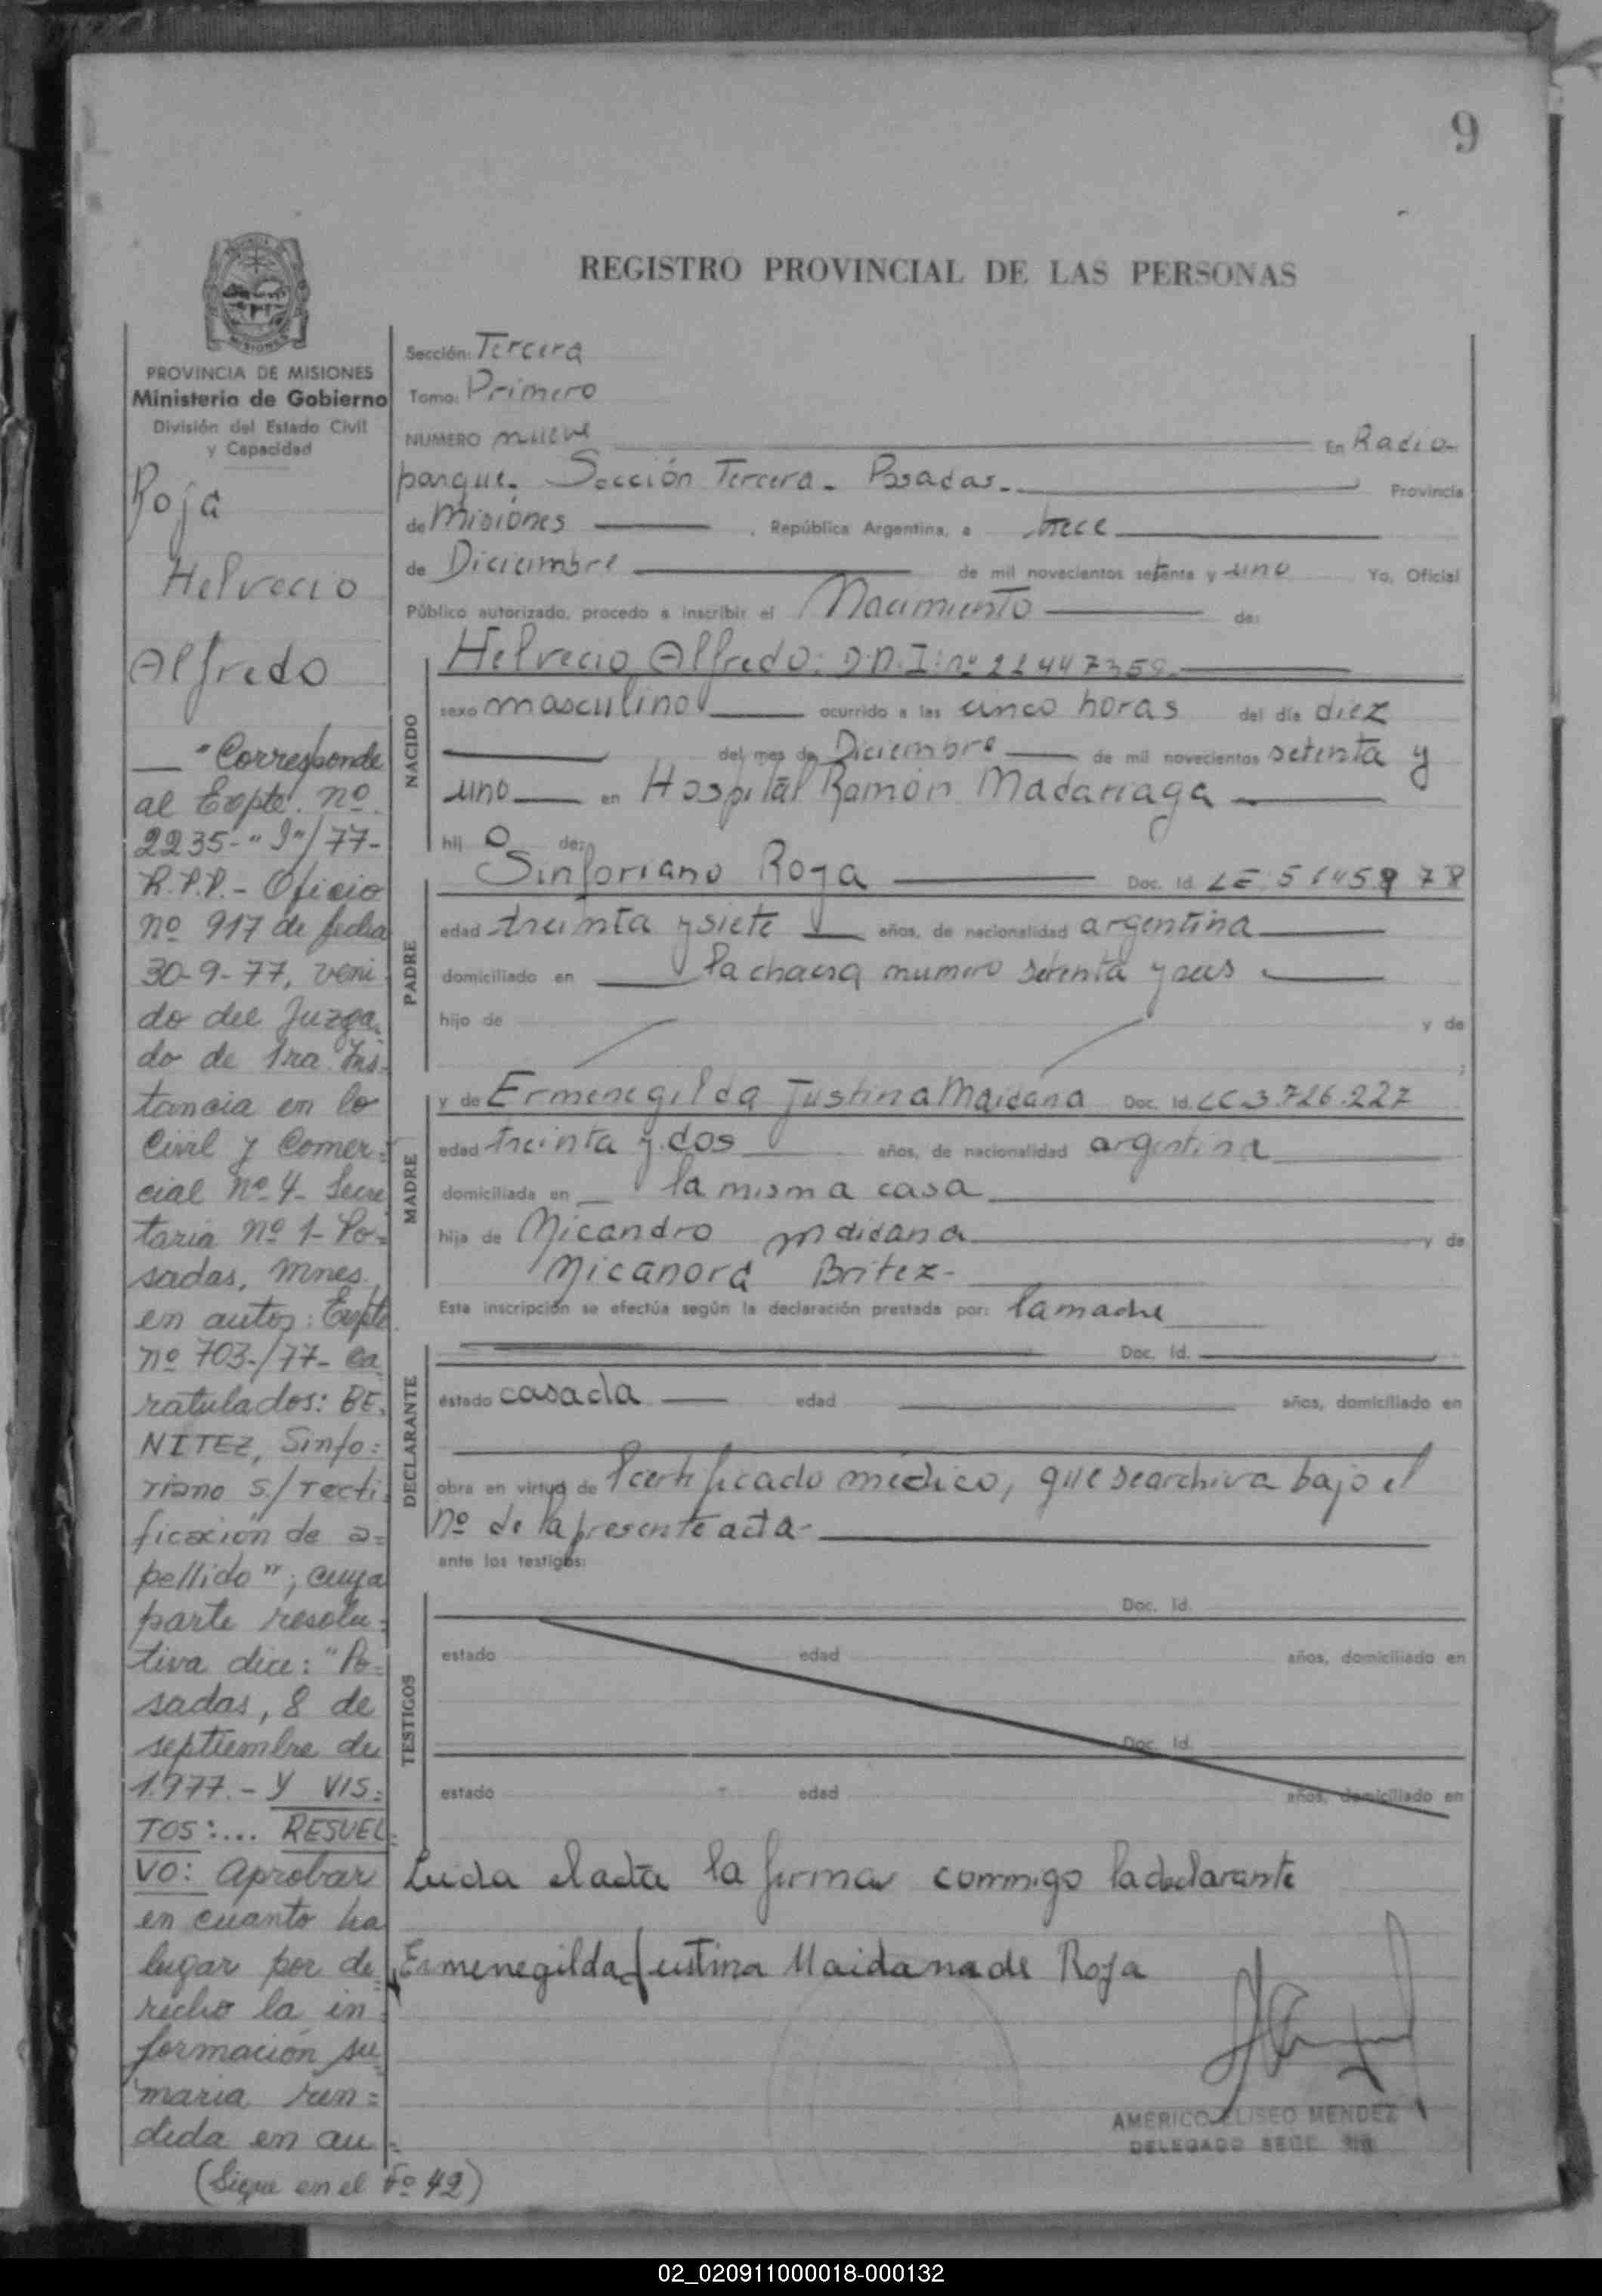 9
REGISTRO PROVINCIAL DE LAS PERSONAS
PROVINCIA DE MISIONES
Ministerio de Gobierno
División del Estado Civil
y Capacidad
Roja
Helvecio
Alfredo
— "Corresponde
al Expte. nº
2235-"J"/77-
R.P.P.- Oficio
nº 917 de fecha
30-9-77, veni
do del Juzga
do de 1ra. Ins-
tancia en lo
Civil y Comer-
cial nº 4- Secre
taria nº 1- Po-
sadas, Mnes.
en autos: Expte
nº 703-/77- Ca
ratulados: BE-
NITEZ, Sinfo=
riano s./recti
ficación de a=
pellido"; cuya
parte resolu=
tiva dice: "Po=
sadas, 8 de
septiembre de
1.977.- Y VIS=
TOS:... RESUEL=
VO: Aprobar
en cuanto ha
lugar por de
recho la in
formación su
maria ren=
dida en au=
(Sigue en el Fº 42)
Sección: Tercera
Tomo: Primero
NUMERO nueve En Radio-
parque. Sección Tercera- Posadas- Provincia
de Misiones , República Argentina, a trece
de Diciembre de mil novecientos setenta y uno Yo, Oficial
Público autorizado, procedo a inscribir el Nacimiento de:
NACIDO
Helvecio Alfredo: D.N.I: nº 22447359
sexo masculino ocurrido a las cinco horas del día diez
del mes de Diciembre de mil novecientos setenta y
uno en Hospital Ramón Madariaga
hij o de:
PADRE
Sinforiano Roja Doc. Id. LE: 5 145978
edad treinta y siete años, de nacionalidad argentina
domiciliado en la chacra numero setenta y seis
hijo de y de
MADRE
y de Ermenegilda Justina Maidana Doc. Id. LC 3.726.227
edad treinta y dos años, de nacionalidad argentina
domiciliada en la misma casa
hija de Nicandro maidana y de
Nicanora Britez-
Esta inscripción se efectúa según la declaración prestada por: la madre
DECLARANTE
Doc. Id.
estado casada edad años, domiciliado en
obra en virtud de certificado médico, que se archiva bajo el
nº de la presente acta-
ante los testigos:
TESTIGOS
Doc. Id.
estado edad años, domiciliado en
Doc. Id.
estado edad años, domiciliado en
Leida el acta la firma conmigo la declarante
Ermenegilda Justina Maidana de Roja
AMERICO ELISEO MENDEZ
DELEGADO SECC.
02_020911000018-000132